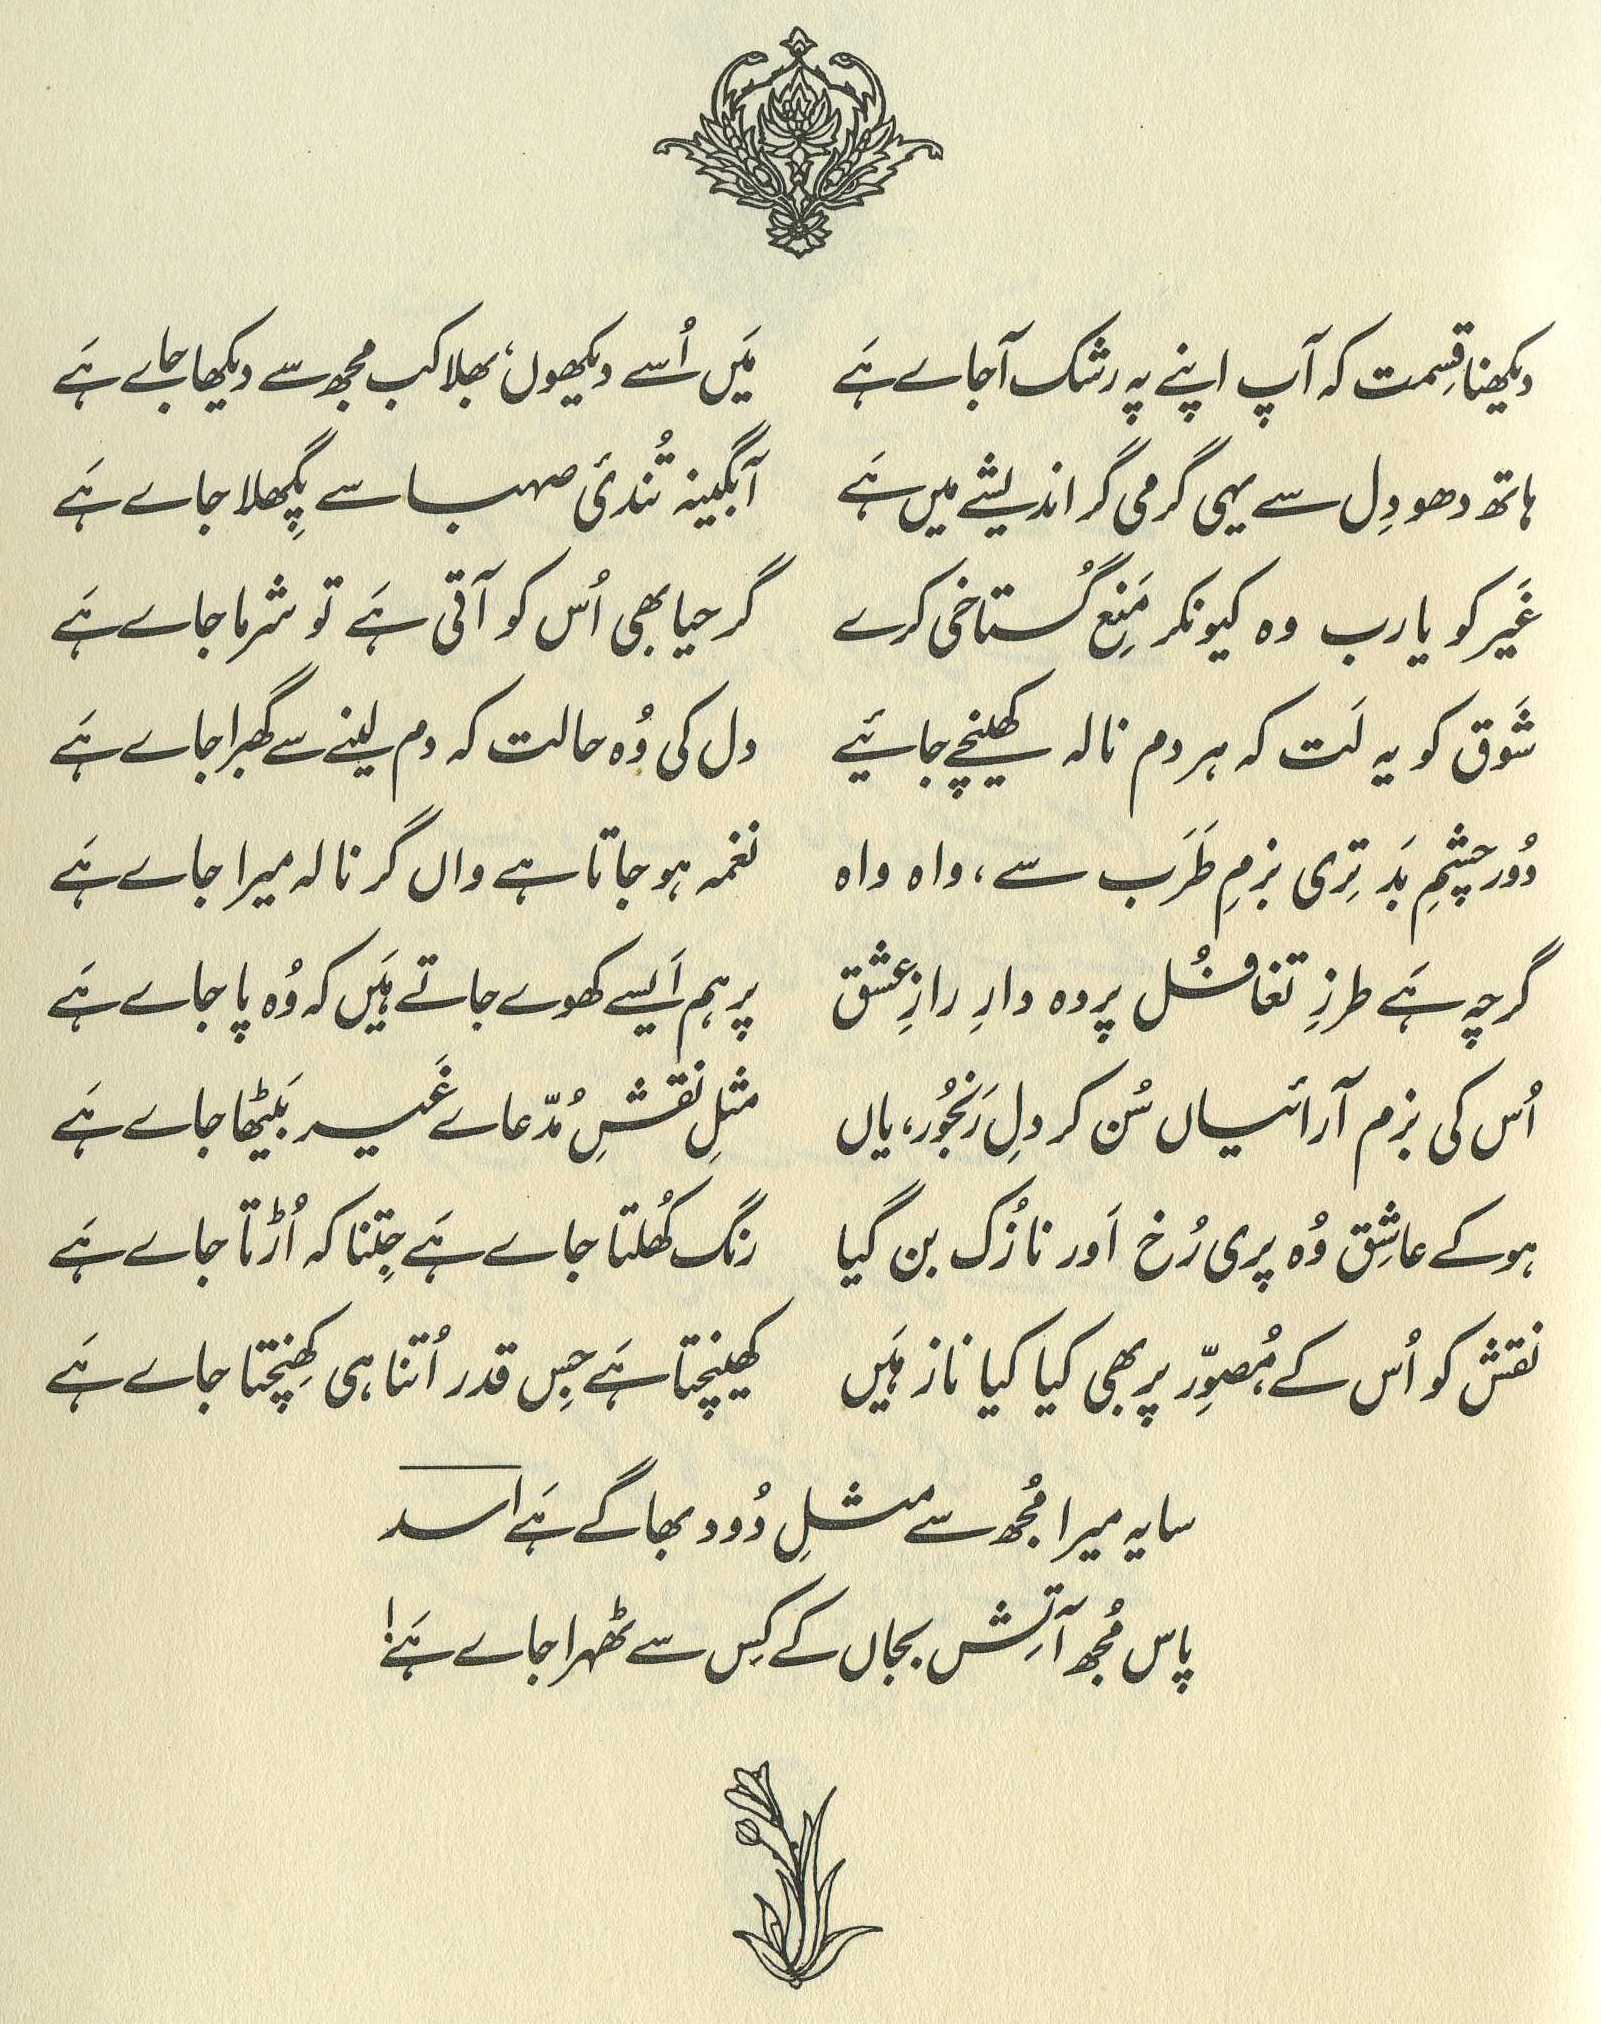 دیکھنا قِسمت کہ آپ اپنے پہ رشک آ جاے ہَے مَیں اُسے دیکھوں، بھلا کب مجھ سے دیکھا جاے ہَے
ہاتھ دھو دِل سے یہی گرمی گر اندیشے میں ہَے آبگینہ تُندئ صہبا سے پِگھلا جاے ہَے
غَیر کو یارب وہ کیونکر مَنِع گُستاخی کرے گر حیا بھی اُس کو آتی ہَے تو شرما جاے ہَے
شَوق کو یہ لَت کہ ہر دم نالہ کھینچے جائیے دل کی وُہ حالت کہ دم لینے سے گھبرا جاے ہَے
دُور چشمِ بَد تِری بزمِ طَرَب سے، واہ واہ نغمہ ہو جاتا ہے واں گر نالہ میرا جاے ہَے
گرچہ ہَے طرزِ تغافُل پردہ دارِ رازِ عشق پر ہم اَیسے کھوے جاتے ہَیں کہ وُہ پا جاے ہَے
اُس کی بزم آرائیاں سُن کر دلِ رَنجُور، یاں مثلِ نقشِ مُدّعاے غَیر بَیٹھا جاے ہَے
ہو کے عاشِق وُہ پری رُخ اَور نازُک بن گیا رنگ کُھلتا جاے ہَے جِتنا کہ اُڑتا جاے ہَے
نقش کو اُس کے مُصوِّر پر بھی کیا کیا ناز ہَیں کھینچتا ہَے جِس قدر اُتنا ہی کِھنچتا جاے ہَے
سایہ میرا مُجھ سے مثلِ دُود بھاگے ہَے اسد
پاس مُجھ آتِش بجاں کے کِس سے ٹھہرا جاے ہَے!